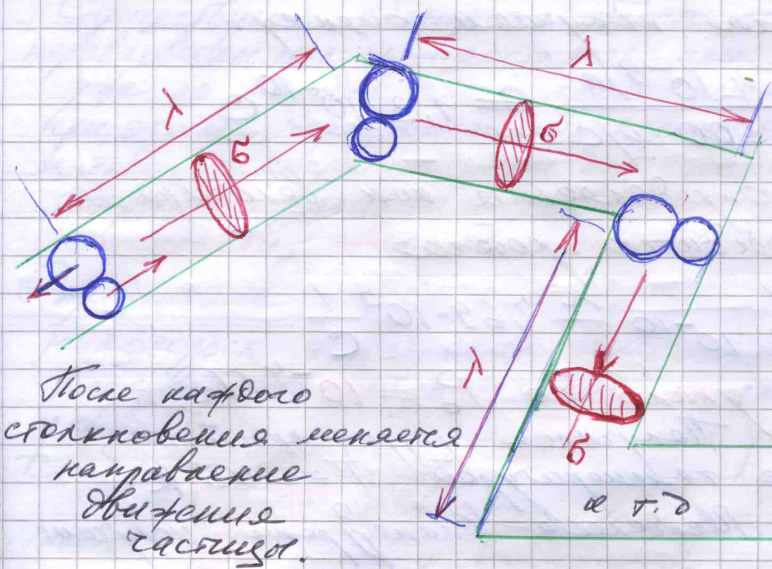 λ
λ
σ
σ
λ
После каждого
столкновения меняется
направление
движения
частицы.
σ
и т.д